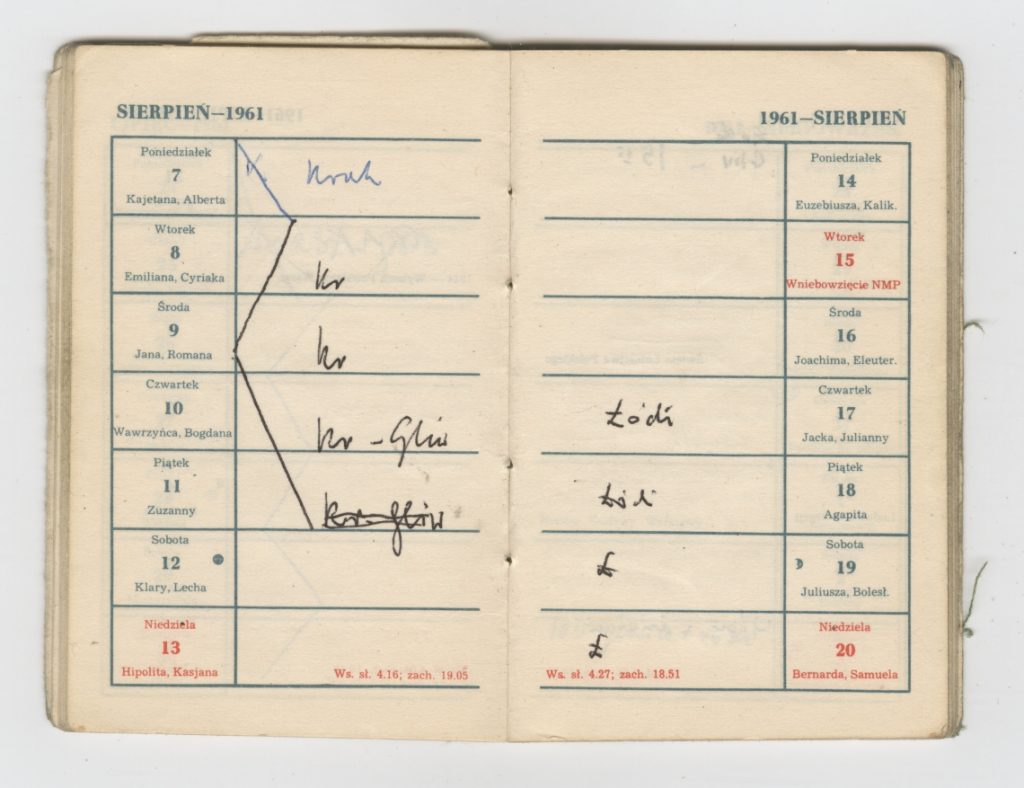 SIERPIEŃ—1961
Poniedziałek
7
Kajetana, Alberta
Krak
Wtorek
8
Emiliana, Cyriaka
Kr
Środa
9
Jana, Romana
Kr
Czwartek
10
Wawrzyńca, Bogdana
Kr - Gliw
Piątek
11
Zuzanny
Kr - Gliw
Sobota
12
Klary, Lecha
Niedziela
13
Hipolita, Kasjana
Ws. sł. 4.16; zach. 19.05
1961—SIERPIEŃ
Poniedziałek
14
Euzebiusza, Kalik.
Wtorek
15
Wniebowzięcie NMP
Środa
16
Joachima, Eleuter.
Czwartek
17
Jacka, Julianny
Łódź
Piątek
18
Agapita
Łódź
Sobota
19
Juliusza, Bolesł.
Ł
Niedziela
20
Bernarda, Samuela
Ł
Ws. sł. 4.27; zach. 18.51